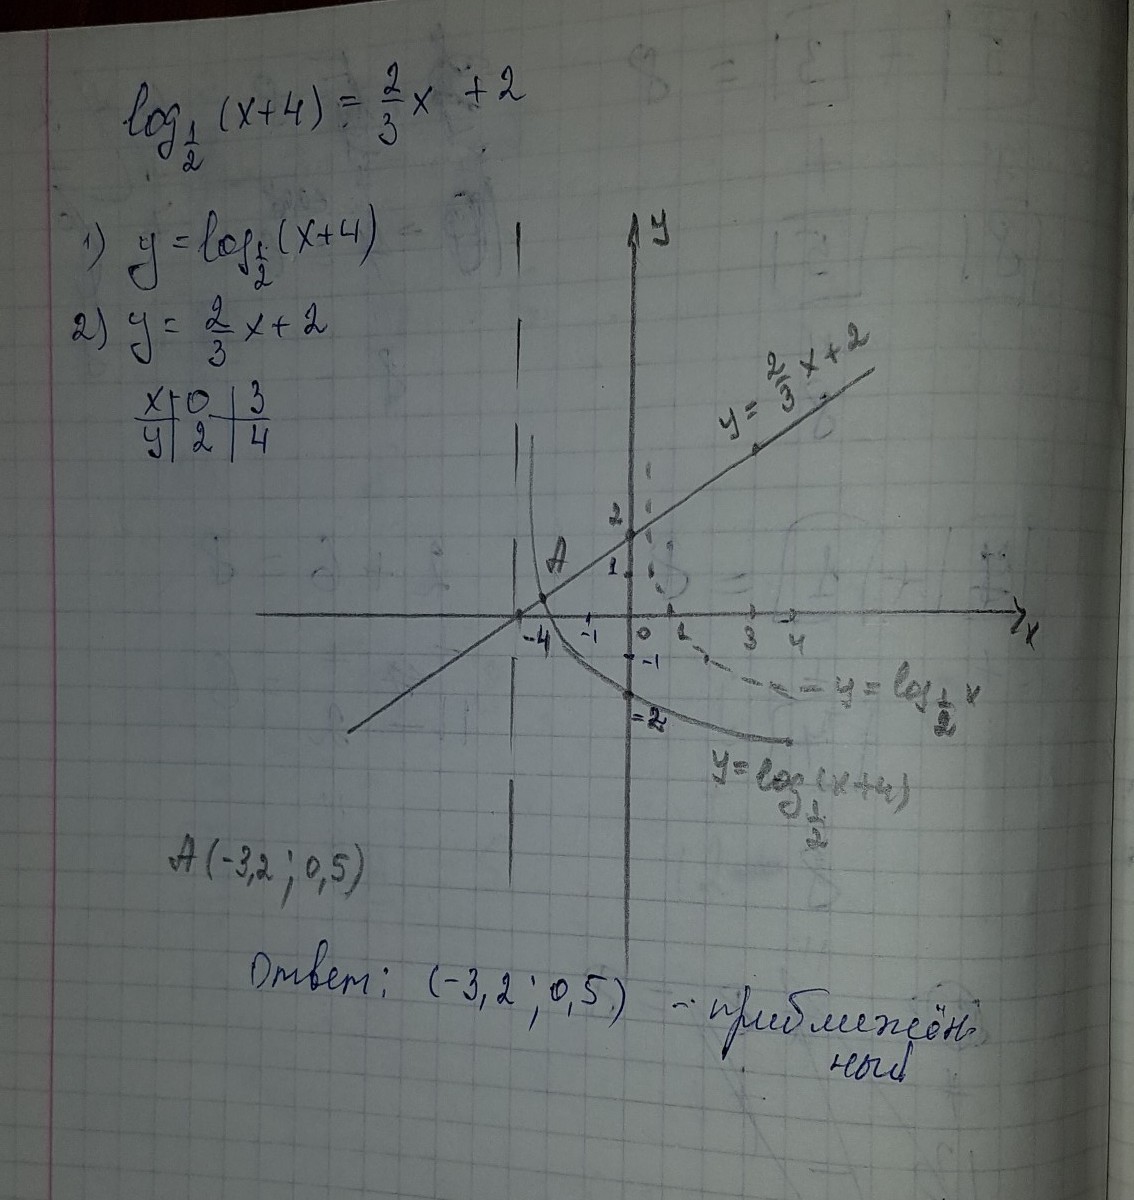 log_{1/2} (x+4) = 2/3 x + 2
1) y = log_{1/2} (x+4)
2) y = 2/3 x + 2
x | 0 | 3
y | 2 | 4
y
y = 2/3 x + 2
2
A
1
-4
-1
0
1
3
4
x
-1
y = log_{1/2} x
-2
y = log_{1/2} (x+4)
A(-3,2 ; 0,5)
Ответ: (-3,2 ; 0,5) - приближён-
ный